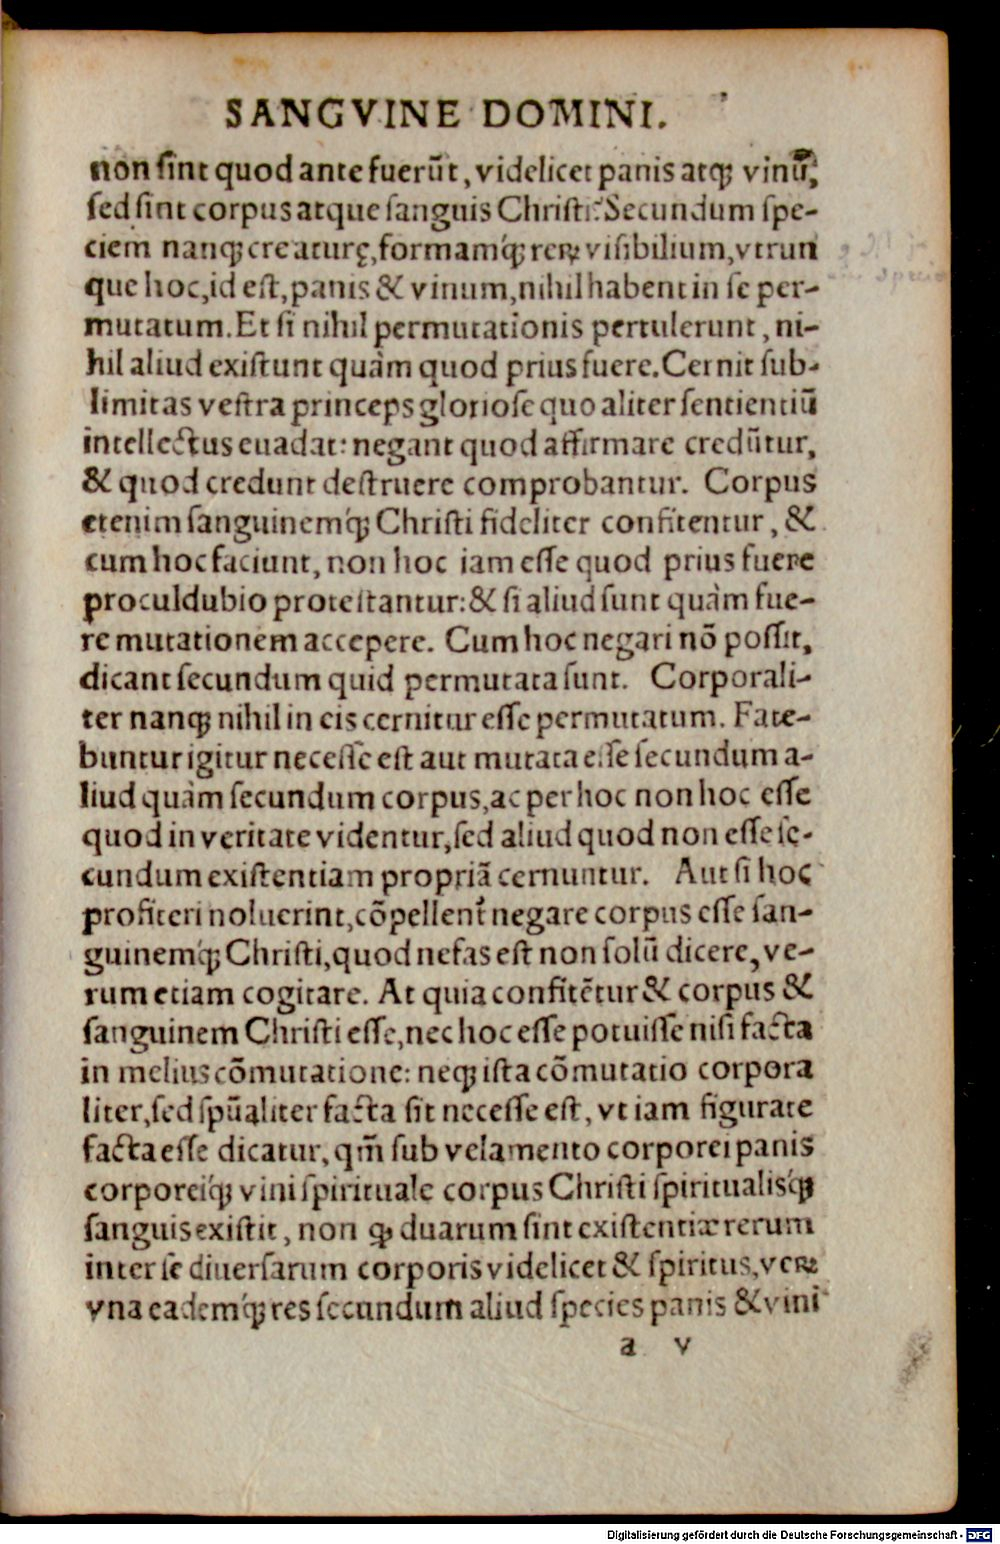 SANGVINE DOMINI.
non ſint quod ante fuerũt, videlicet panis atq; vinũ,
ſed ſint corpus atque ſanguis Chriſti. Secundum ſpe-
ciem nanq; creaturę, formamq́; rerꝝ viſibilium, vtrun
que hoc, id eſt, panis & vinum, nihil habent in ſe per-
mutatum. Et ſi nihil permutationis pertulerunt, ni-
hil aliud exiſtunt quàm quod prius fuere. Cernit ſub-
limitas veſtra princeps glorioſe quo aliter ſentientiũ
intellectus euadat: negant quod affirmare credũtur,
& quod credunt deſtruere comprobantur. Corpus
etenim ſanguinemq́; Chriſti fideliter confitentur, &
cum hoc faciunt, non hoc iam eſſe quod prius fuere
proculdubio proteſtantur: & ſi aliud ſunt quàm fue-
re mutationem accepere. Cum hoc negari nõ poſſit,
dicant ſecundum quid permutata ſunt. Corporali-
ter nanq; nihil in eis cernitur eſſe permutatum. Fate-
buntur igitur neceſſe eſt aut mutata eſſe ſecundum a-
liud quàm ſecundum corpus, ac per hoc non hoc eſſe
quod in veritate videntur, ſed aliud quod non eſſe ſe-
cundum exiſtentiam propriã cernuntur. Aut ſi hoc
profiteri noluerint, cõpellent᷑ negare corpus eſſe ſan-
guinemq́; Chriſti, quod nefas eſt non ſolũ dicere, ve-
rum etiam cogitare. At quia confitẽtur & corpus &
ſanguinem Chriſti eſſe, nec hoc eſſe potuiſſe niſi facta
in melius cõmutatione: neq; iſta cõmutatio corpora
liter, ſed ſpũaliter facta ſit neceſſe eſt, vt iam figurate
facta eſſe dicatur, qm̃ ſub velamento corporei panis
corporeiq́; vini ſpirituale corpus Chriſti ſpiritualisq́;
ſanguis exiſtit, non ꝙ duarum ſint exiſtentiæ rerum
inter ſe diuerſarum corporis videlicet & ſpiritus, veꝝ
vna eademq́; res ſecundum aliud ſpecies panis & vini
a v
Digitalisierung gefördert durch die Deutsche Forschungsgemeinschaft - DFG